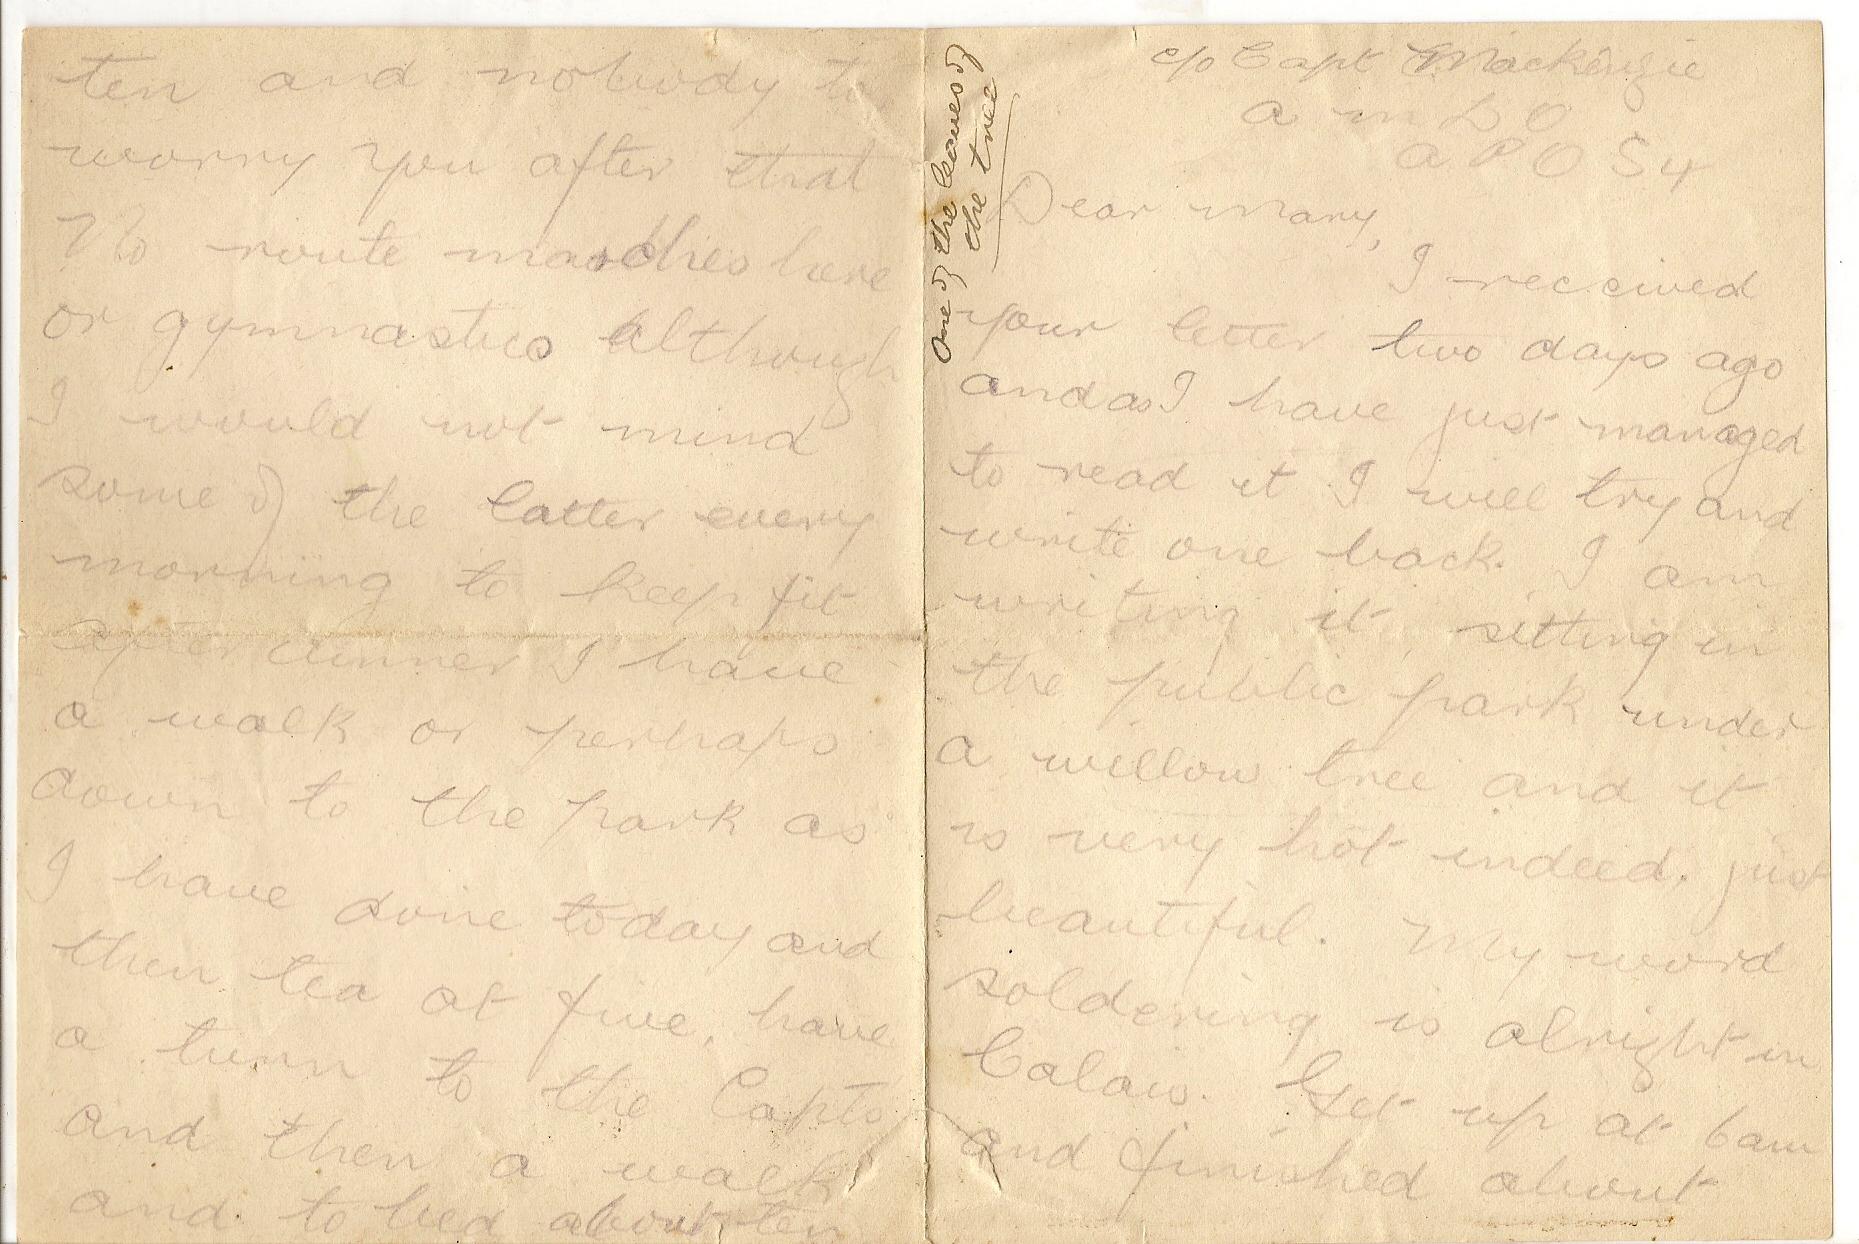 c/o Capt Mackenzie
A M L O
A P O S4
One of the leaves of
the tree
Dear Mary,
I received
your letter two days ago
and as I have just managed
to read it I will try and
write one back. I am
writing it, sitting in
the public park under
a willow tree and it
is very hot indeed, just
beautiful. My word
soldering is alright in
Calais. Get up at 6am
and finished about
ten and nobody to
worry you after that
No route marches here
or gymnastics although
I would not mind
some of the latter every
morning to keep fit
After dinner I have
a walk or perhaps
down to the park as
I have done today and
then tea at five, have
a turn to the Capts
and then a walk
and to bed about ten